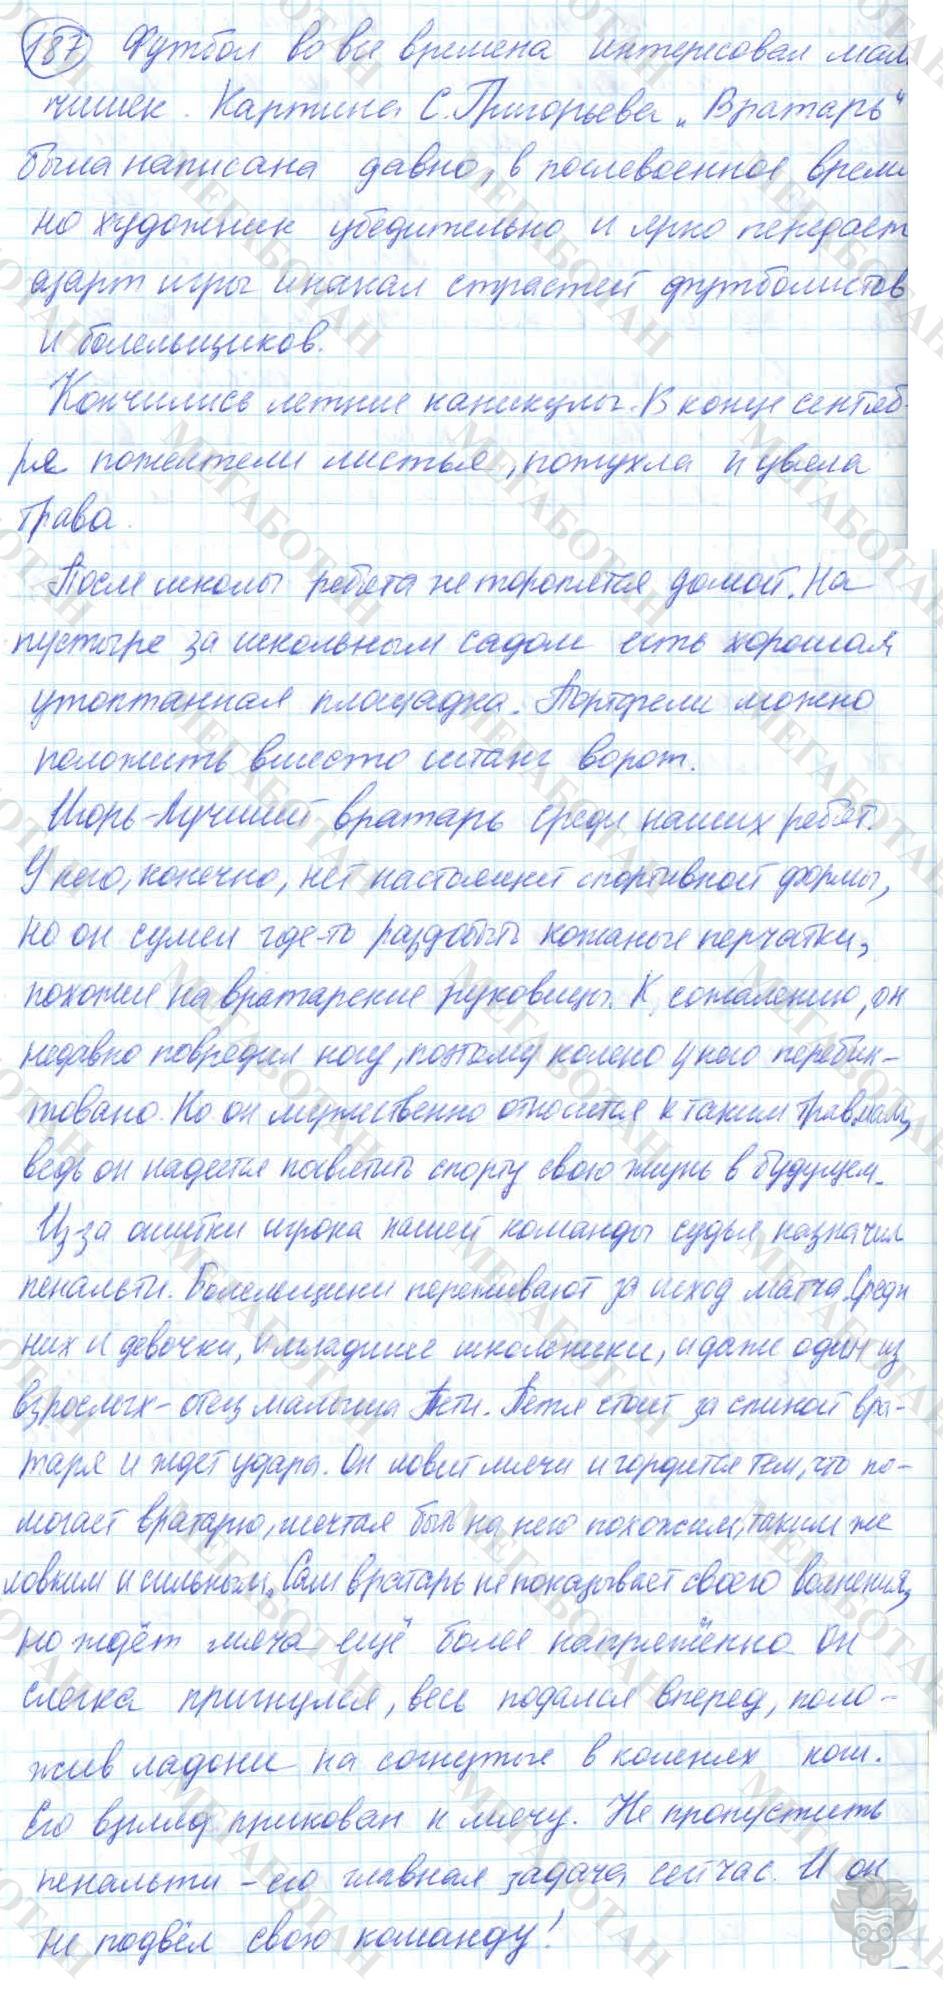 187 Футбол во все времена интересовал маль
чишек. Картина С. Григорьева "Вратарь"
была написана давно, в послевоенное время
но художник убедительно и ярко передает
азарт игры и накал страстей футболистов
и болельщиков.
Кончились летние каникулы. В конце сентяб-
ря пожелтели листья, пожухла и увяла
трава.
После школы ребята не торопятся домой. На
пустыре за школьным садом есть хорошая
утоптанная площадка. Портфели можно
положить вместо штанг ворот.
Игорь - лучший вратарь среди наших ребят.
У него, конечно, нет настоящей спортивной формы,
но он сумел где-то раздобыть кожаные перчатки,
похожие на вратарские рукавицы. К сожалению, он
недавно повредил ногу, поэтому колено у него перебин-
товано. Но он мужественно относится к таким травмам,
ведь он надеется посвятить спорту свою жизнь в будущем.
Из-за ошибки игрока нашей команды судья назначил
пенальти. Болельщики переживают за исход матча. Среди
них и девочки, и младшие школьники, и даже один из
взрослых - отец малыша Пети. Петя стоит за спиной вра-
таря и ждет удары. Он ловит мячи и гордится тем, что по-
могает вратарю, мечтая быть на него похожим, таким же
ловким и сильным. Сам вратарь не показывает своего волнения,
но ждёт мяча ещё более напряжённо. Он
слегка пригнулся, весь подался вперед, поло-
жив ладони на согнутые в коленях ноги.
Его взгляд прикован к мячу. Не пропустить
пенальти - его главная задача сейчас. И он
не подвёл свою команду!
МЕГАБОТАН